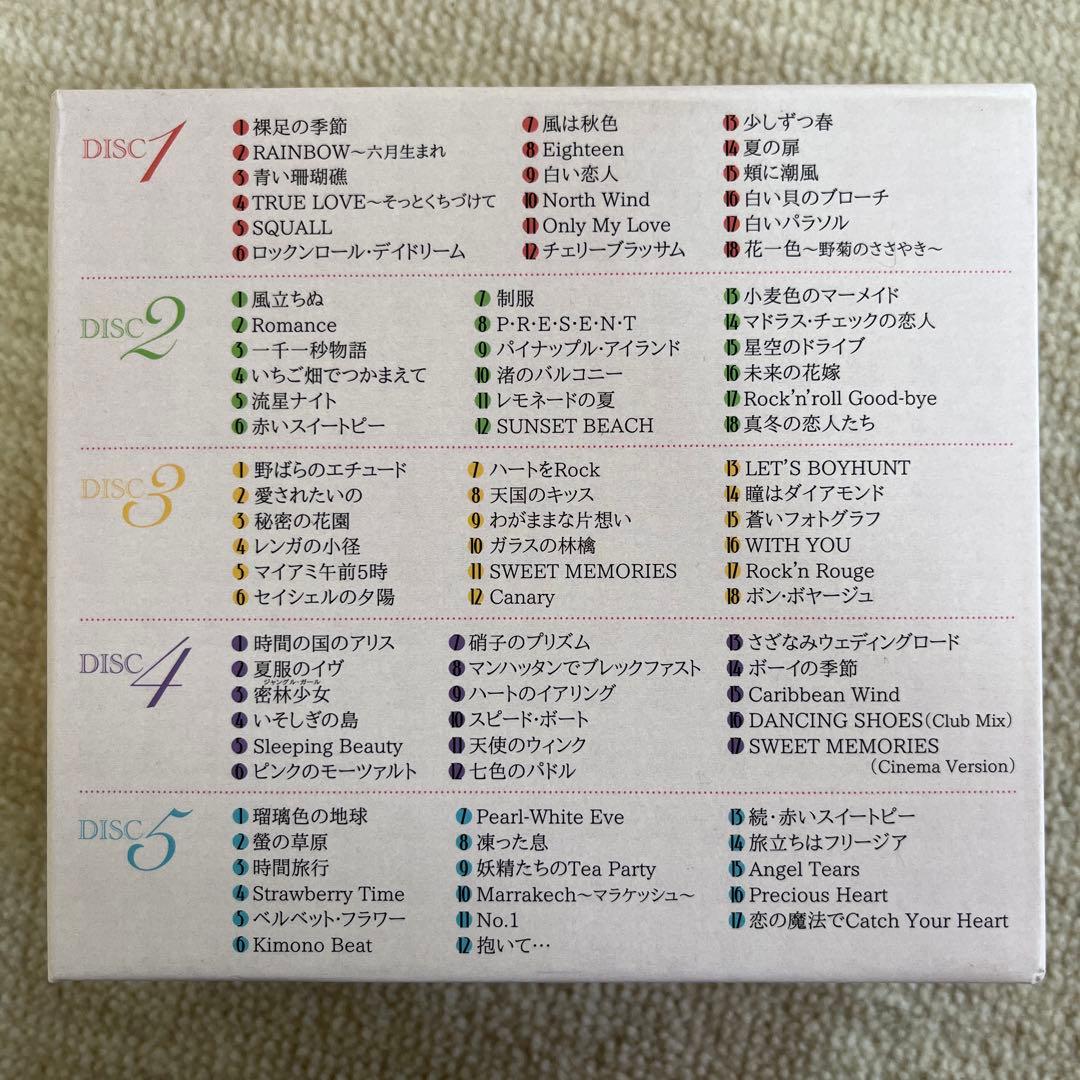 DISC 1
1 裸足の季節
2 RAINBOW〜六月生まれ
3 青い珊瑚礁
4 TRUE LOVE〜そっとくちづけて
5 SQUALL
6 ロックンロール・デイドリーム
7 風は秋色
8 Eighteen
9 白い恋人
10 North Wind
11 Only My Love
12 チェリーブラッサム
13 少しずつ春
14 夏の扉
15 頬に潮風
16 白い貝のブローチ
17 白いパラソル
18 花一色〜野菊のささやき〜
DISC 2
1 風立ちぬ
2 Romance
3 一千一秒物語
4 いちご畑でつかまえて
5 流星ナイト
6 赤いスイートピー
7 制服
8 P・R・E・S・E・N・T
9 パイナップル・アイランド
10 渚のバルコニー
11 レモネードの夏
12 SUNSET BEACH
13 小麦色のマーメイド
14 マドラス・チェックの恋人
15 星空のドライブ
16 未来の花嫁
17 Rock'n'roll Good-bye
18 真冬の恋人たち
DISC 3
1 野ばらのエチュード
2 愛されたいの
3 秘密の花園
4 レンガの小径
5 マイアミ午前5時
6 セイシェルの夕陽
7 ハートをRock
8 天国のキッス
9 わがままな片想い
10 ガラスの林檎
11 SWEET MEMORIES
12 Canary
13 LET'S BOYHUNT
14 瞳はダイアモンド
15 蒼いフォトグラフ
16 WITH YOU
17 Rock'n Rouge
18 ボン・ボヤージュ
DISC 4
1 時間の国のアリス
2 夏服のイヴ
ジャングル・ガール
3 密林少女
4 いそしぎの島
5 Sleeping Beauty
6 ピンクのモーツァルト
7 硝子のプリズム
8 マンハッタンでブレックファスト
9 ハートのイアリング
10 スピード・ボート
11 天使のウィンク
12 七色のパドル
13 さざなみウェディングロード
14 ボーイの季節
15 Caribbean Wind
16 DANCING SHOES(Club Mix)
17 SWEET MEMORIES
(Cinema Version)
DISC 5
1 瑠璃色の地球
2 螢の草原
3 時間旅行
4 Strawberry Time
5 ベルベット・フラワー
6 Kimono Beat
7 Pearl-White Eve
8 凍った息
9 妖精たちのTea Party
10 Marrakech〜マラケッシュ〜
11 No.1
12 抱いて…
13 続・赤いスイートピー
14 旅立ちはフリージア
15 Angel Tears
16 Precious Heart
17 恋の魔法でCatch Your Heart